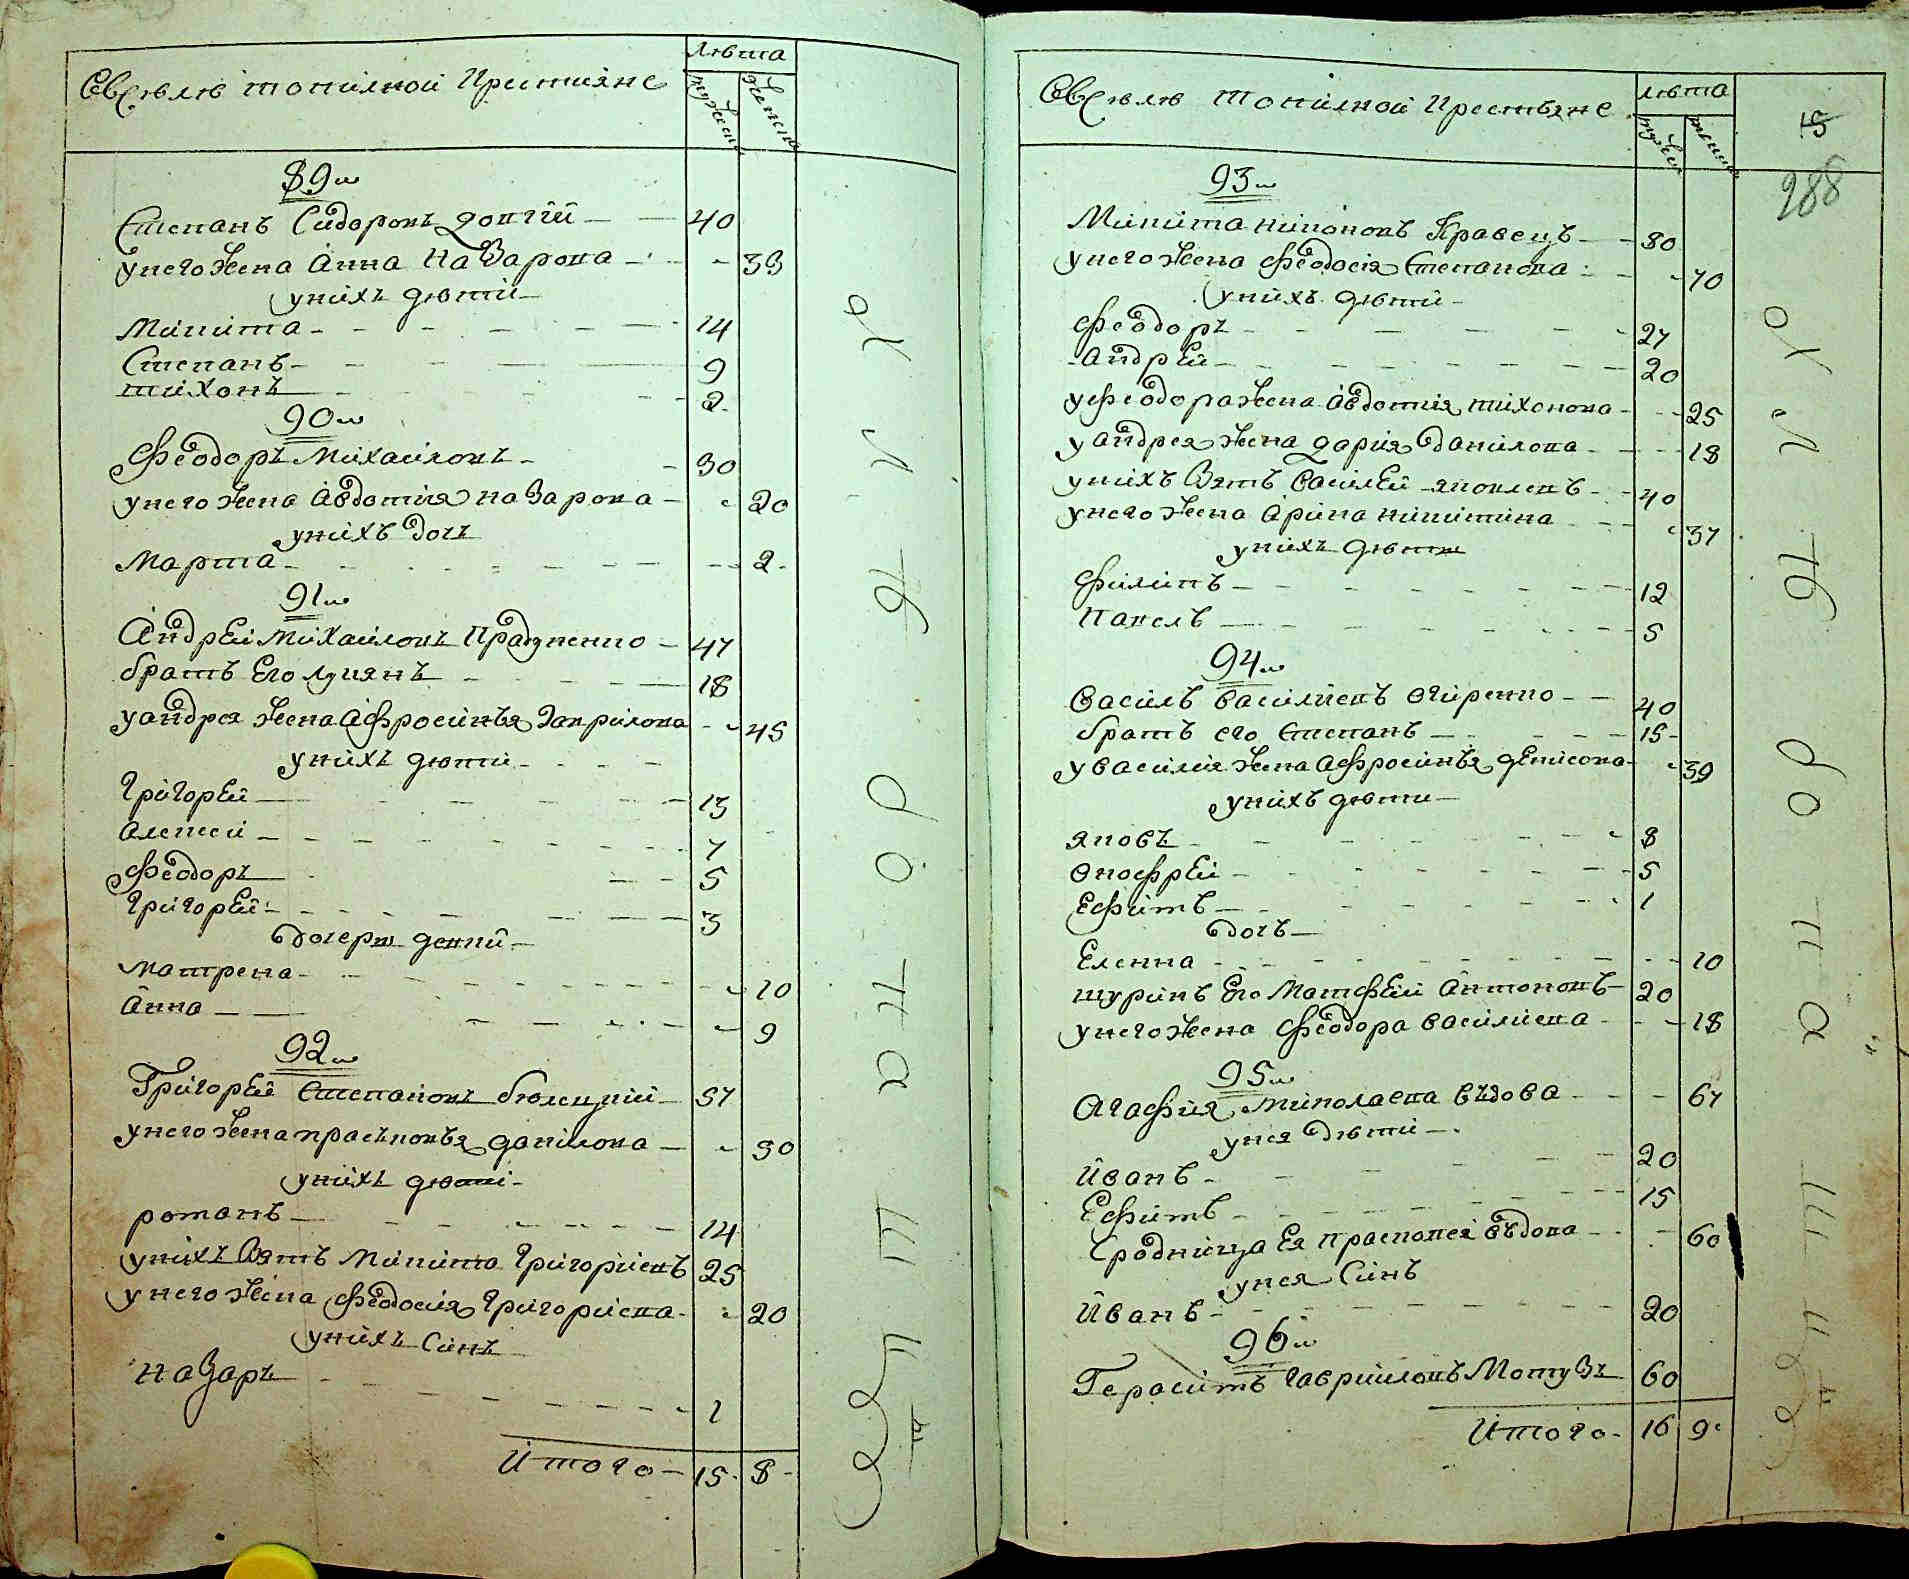 Въ селѣ топилной крестяне
лѣта
мужески
женски
89й
Степанъ Сидоровъ довгїй 40
унего жена Анна Назарова 33
унихъ дѣти
Микита 14
Степанъ 9
тихонъ 2
90й
Феодоръ Михаиловъ 30
унего жена Авдотия назарова 20
унихъ дочь
Марта 2
91й
Андрей Михаиловъ 47
братъ Его лукянъ 18
уандрея жена Афросинья Гаврилова 45
унихъ дѣти
Григорей 13
Алексей 7
Феодоръ 5
Григорей 3
дочери девки
Матрена 10
Анна 9
92й
Григорей Степановъ 57
унего жена прасковья данилова 50
унихъ дѣти
романъ 14
унихъ Зять Микита Григориевъ 25
унего жена Феодосия Григориева 20
унихъ Синъ
назаръ 1
Итого 15 8
Въ селѣ топилной крестьяне
лѣта
мужески
женски
288
93й
Микита никоновъ Кравецъ 80
унего жена Феодосия Степанова 70
унихъ дѣти
Феодоръ 27
Андрей 20
уФеодора жена Авдотия тихонова 25
уандрея жена дария данилова 18
унихъ Зять Василей яковлевъ 40
унего жена Арина никитина 37
унихъ дѣти
Филипъ 12
павелъ 5
94й
Василъ василиевъ 40
братъ его Степанъ 15
увасилия жена Афросинья денисова 39
унихъ дѣти
яковъ 8
Онофрей 5
Ефимъ 1
дочь
Еленна 10
шуринъ Его Матфей Антоновъ 20
унего жена Феодора василиева 18
95й
Агафия миколаева въдова 67
унея дѣти
Иванъ 20
Ефимъ 15
Сродница Ея прасковея въдова 60
унея Синъ
Иванъ 20
96й
Герасимъ гавриловъ Мотузъ 60
Итого 16 9